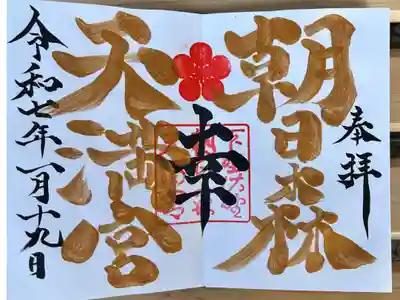 奉拝
朝日森
幸
天満宮
令和七年一月十九日